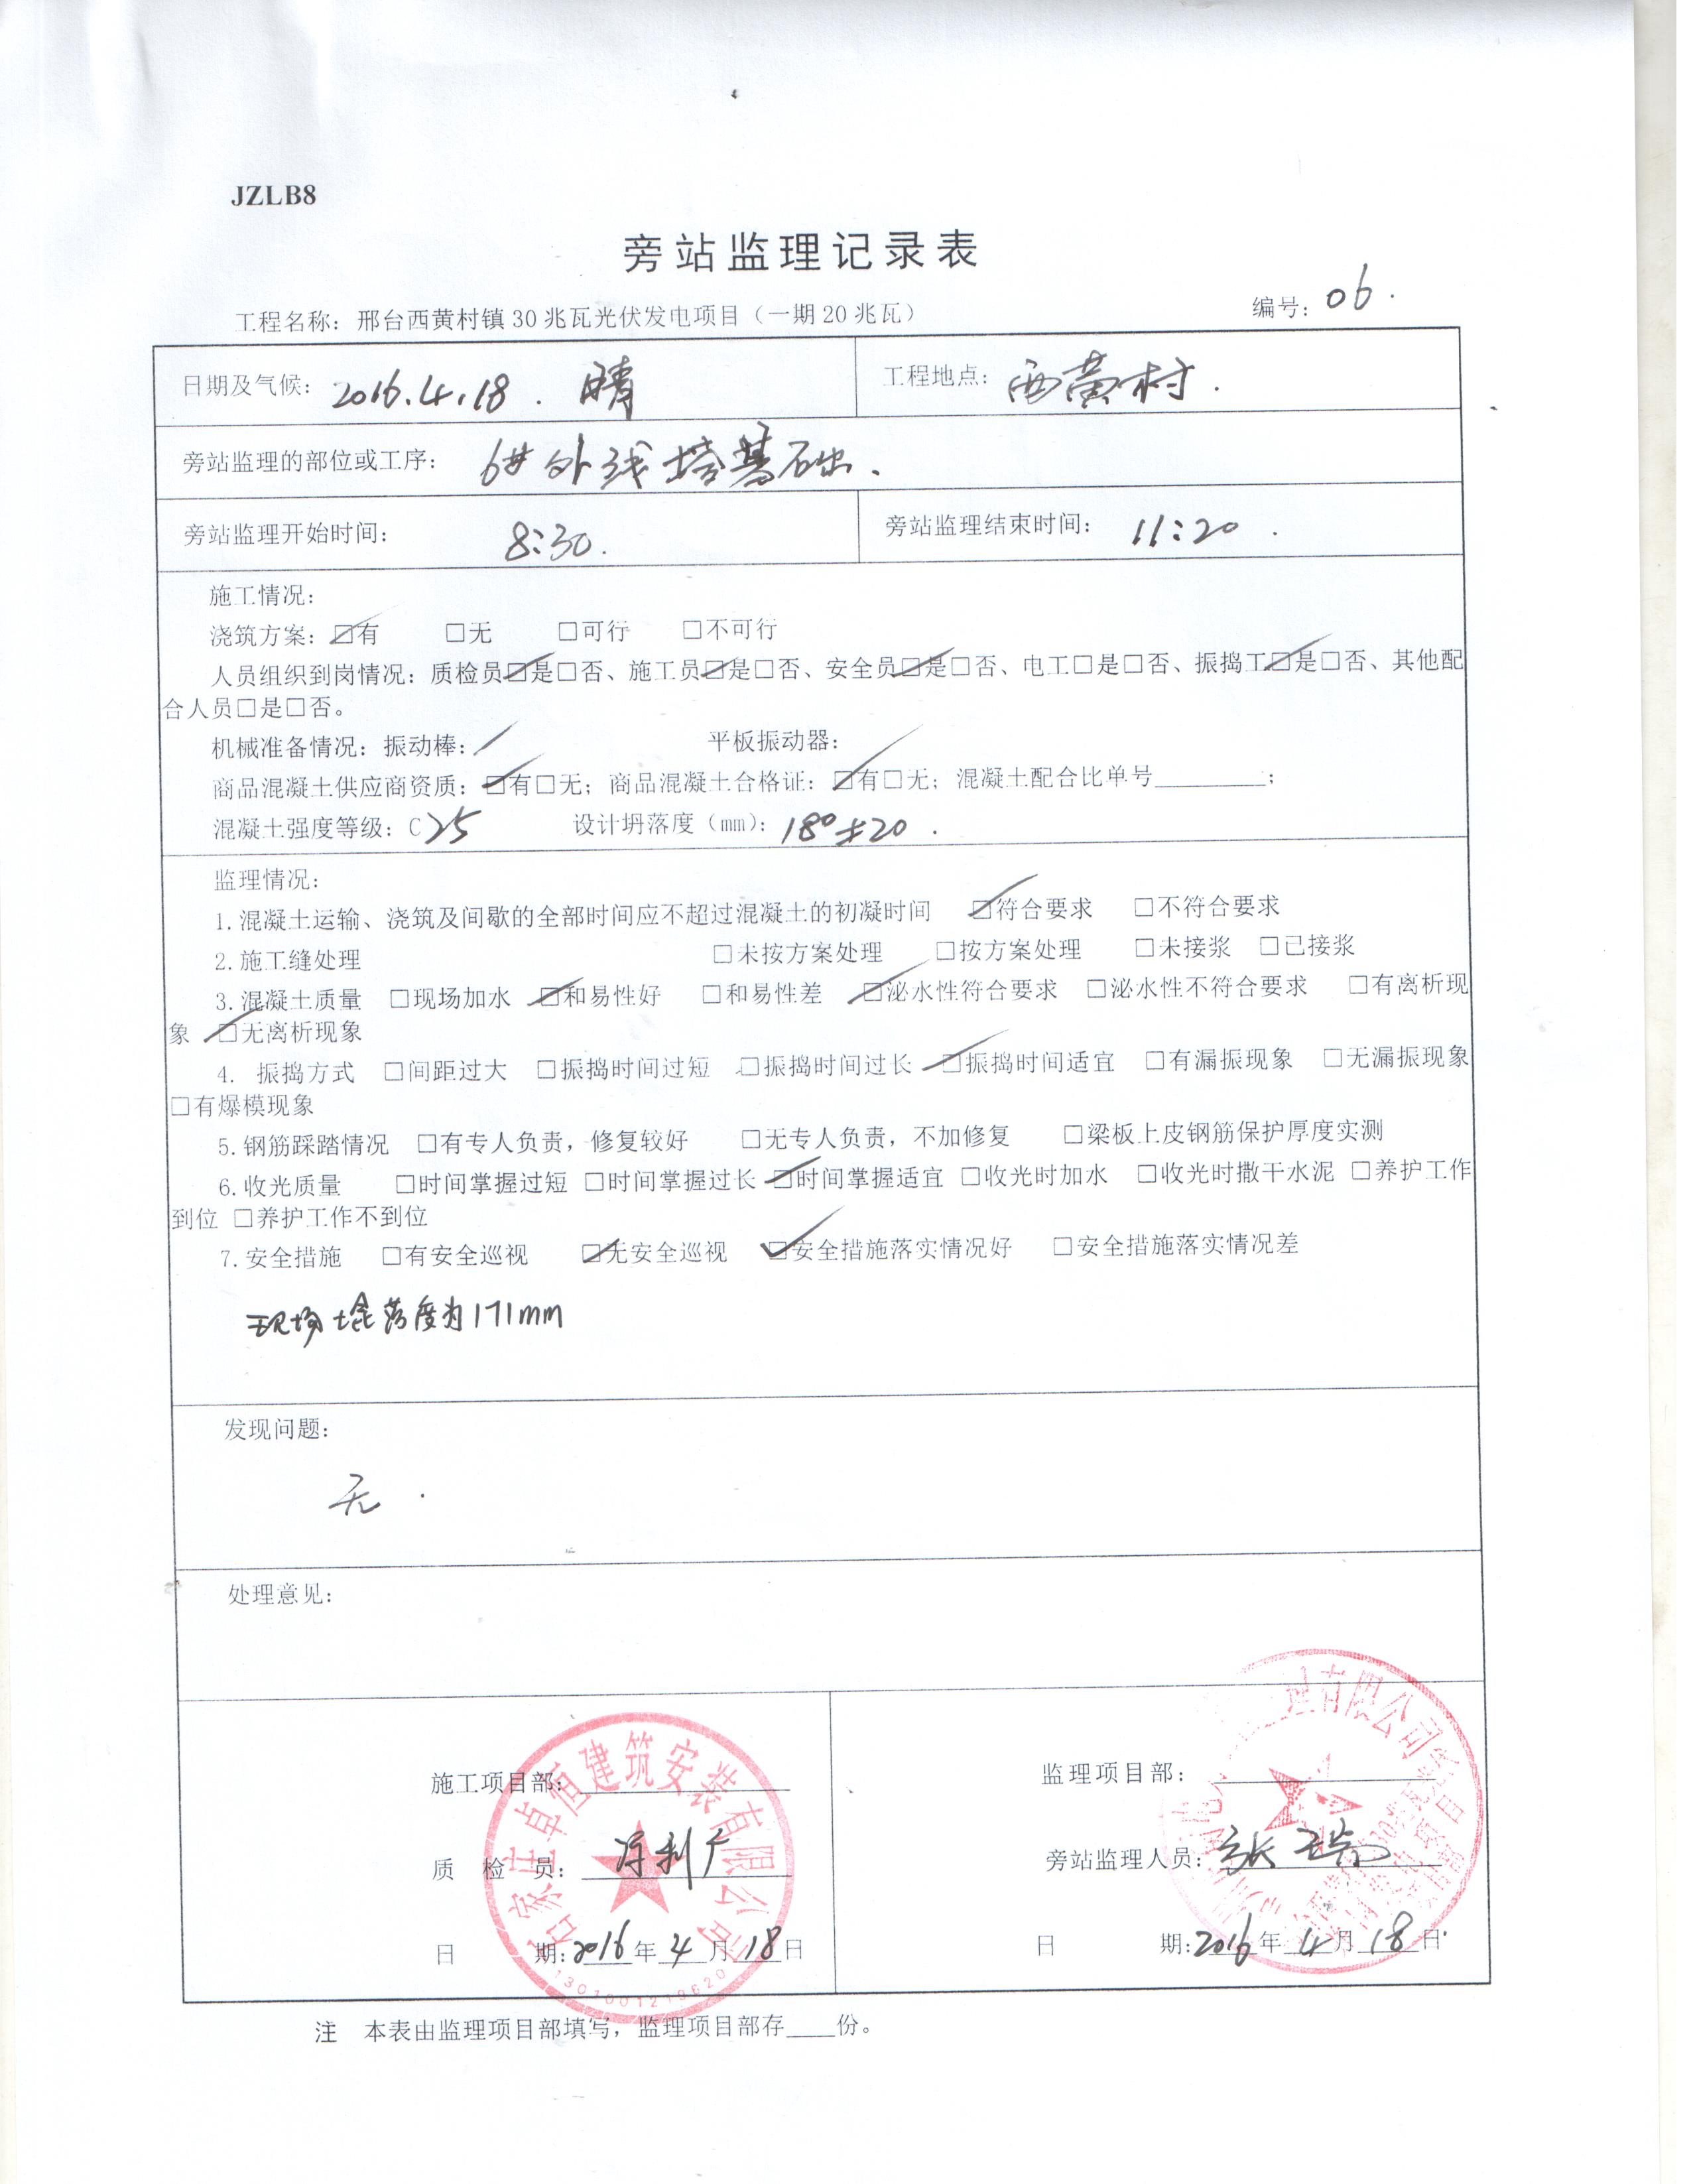 JZLB8
旁站监理记录表
工程名称：邢台西黄村镇30兆瓦光伏发电项目（一期20兆瓦） 编号：06.
日期及气候：2016.4.18. 晴 工程地点：西黄村.
旁站监理的部位或工序：6# 外线塔基础.
旁站监理开始时间： 8:30. 旁站监理结束时间： 11:20.
施工情况：
浇筑方案：☑有 □无 □可行 □不可行
人员组织到岗情况：质检员☑是□否、施工员☑是□否、安全员☑是□否、电工□是□否、振捣工☑是□否、其他配
合人员□是□否。
机械准备情况：振动棒：✓ 平板振动器：
商品混凝土供应商资质：☑有□无；商品混凝土合格证：☑有□无；混凝土配合比单号________；
混凝土强度等级：C25 设计坍落度（mm）：180±20.
监理情况：
1.混凝土运输、浇筑及间歇的全部时间应不超过混凝土的初凝时间 ☑符合要求 □不符合要求
2.施工缝处理 □未按方案处理 □按方案处理 □未接浆 □已接浆
3.混凝土质量 □现场加水 ☑和易性好 □和易性差 ☑泌水性符合要求 □泌水性不符合要求 □有离析现
象 ☑无离析现象
4. 振捣方式 □间距过大 □振捣时间过短 □振捣时间过长 ☑振捣时间适宜 □有漏振现象 □无漏振现象
□有爆模现象
5.钢筋踩踏情况 □有专人负责，修复较好 □无专人负责，不加修复 □梁板上皮钢筋保护厚度实测
6.收光质量 □时间掌握过短 □时间掌握过长 ☑时间掌握适宜 □收光时加水 □收光时撒干水泥 □养护工作
到位 □养护工作不到位
7.安全措施 □有安全巡视 ☑无安全巡视 ☑安全措施落实情况好 □安全措施落实情况差
现场 落度为171mm
发现问题：
无.
处理意见：
施工项目部： 监理项目部：
石家庄卓恒建筑安装有限公司
理有限公司
质检员： 利广 旁站监理人员：张瑞
日期:2016年4月18日 日期:2016年4月18日
注 本表由监理项目部填写，监理项目部存____份。